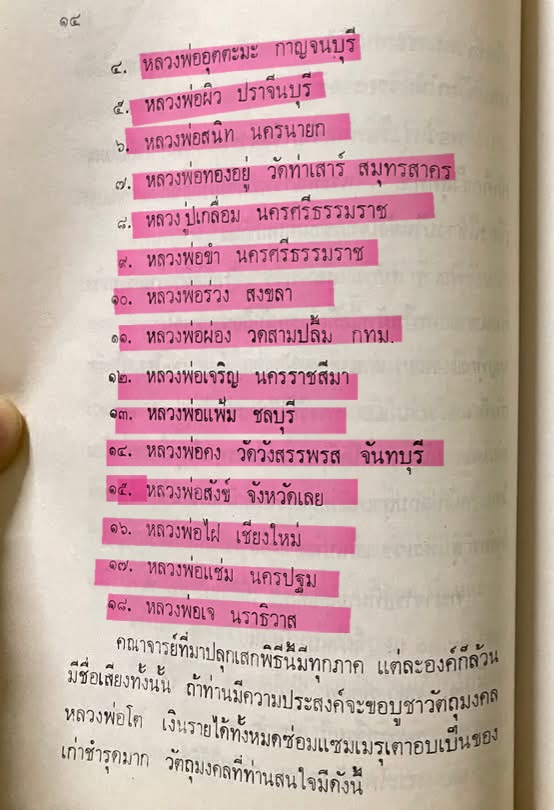 ๑๔
๔. หลวงพ่ออุตตะมะ กาญจนบุรี
๕. หลวงพ่อผิว ปราจีนบุรี
๖. หลวงพ่อสนิท นครนายก
๗. หลวงพ่อทองอยู่ วัดท่าเสาร์ สมุทรสาคร
๘. หลวงปู่เกลื่อม นครศรีธรรมราช
๙. หลวงพ่อขำ นครศรีธรรมราช
๑๐. หลวงพ่อร่วง สงขลา
๑๑. หลวงพ่อผ่อง วัดสามปลื้ม กทม.
๑๒. หลวงพ่อเจริญ นครราชสีมา
๑๓. หลวงพ่อแฟ้ม ชลบุรี
๑๔. หลวงพ่อคง วัดวังสรรพรส จันทบุรี
๑๕. หลวงพ่อสังข์ จังหวัดเลย
๑๖. หลวงพ่อไฝ เชียงใหม่
๑๗. หลวงพ่อแช่ม นครปฐม
๑๘. หลวงพ่อเจ นราธิวาส
คณาจารย์ที่มาปลุกเสกพิธีนี้มีทุกภาค แต่ละองค์ก็ล้วน
มีชื่อเสียงทั้งนั้น ถ้าท่านมีความประสงค์จะขอบูชาวัตถุมงคล
หลวงพ่อโต เงินรายได้ทั้งหมดซ่อมแซมเมรุเตาอบเป็นของ
เก่าชำรุดมาก วัตถุมงคลที่ท่านสนใจมีดังนี้